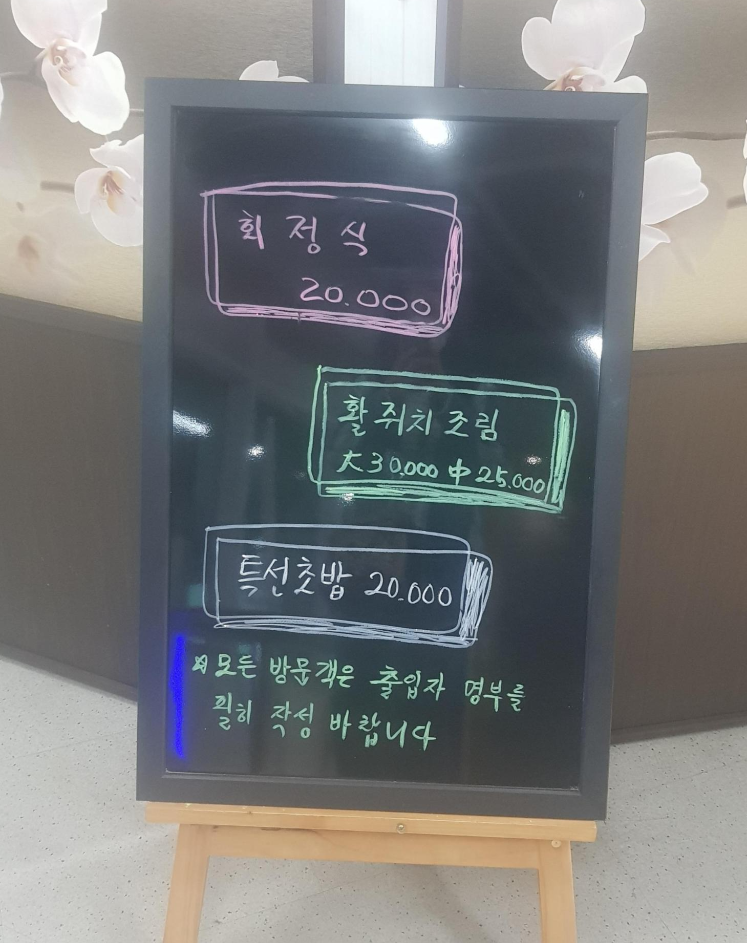 회 정 식
20.000
활 쥐치 조림
大 30.000 中 25.000
특선초밥 20.000
※모든 방문객은 출입자 명부를
필히 작성 바랍니다